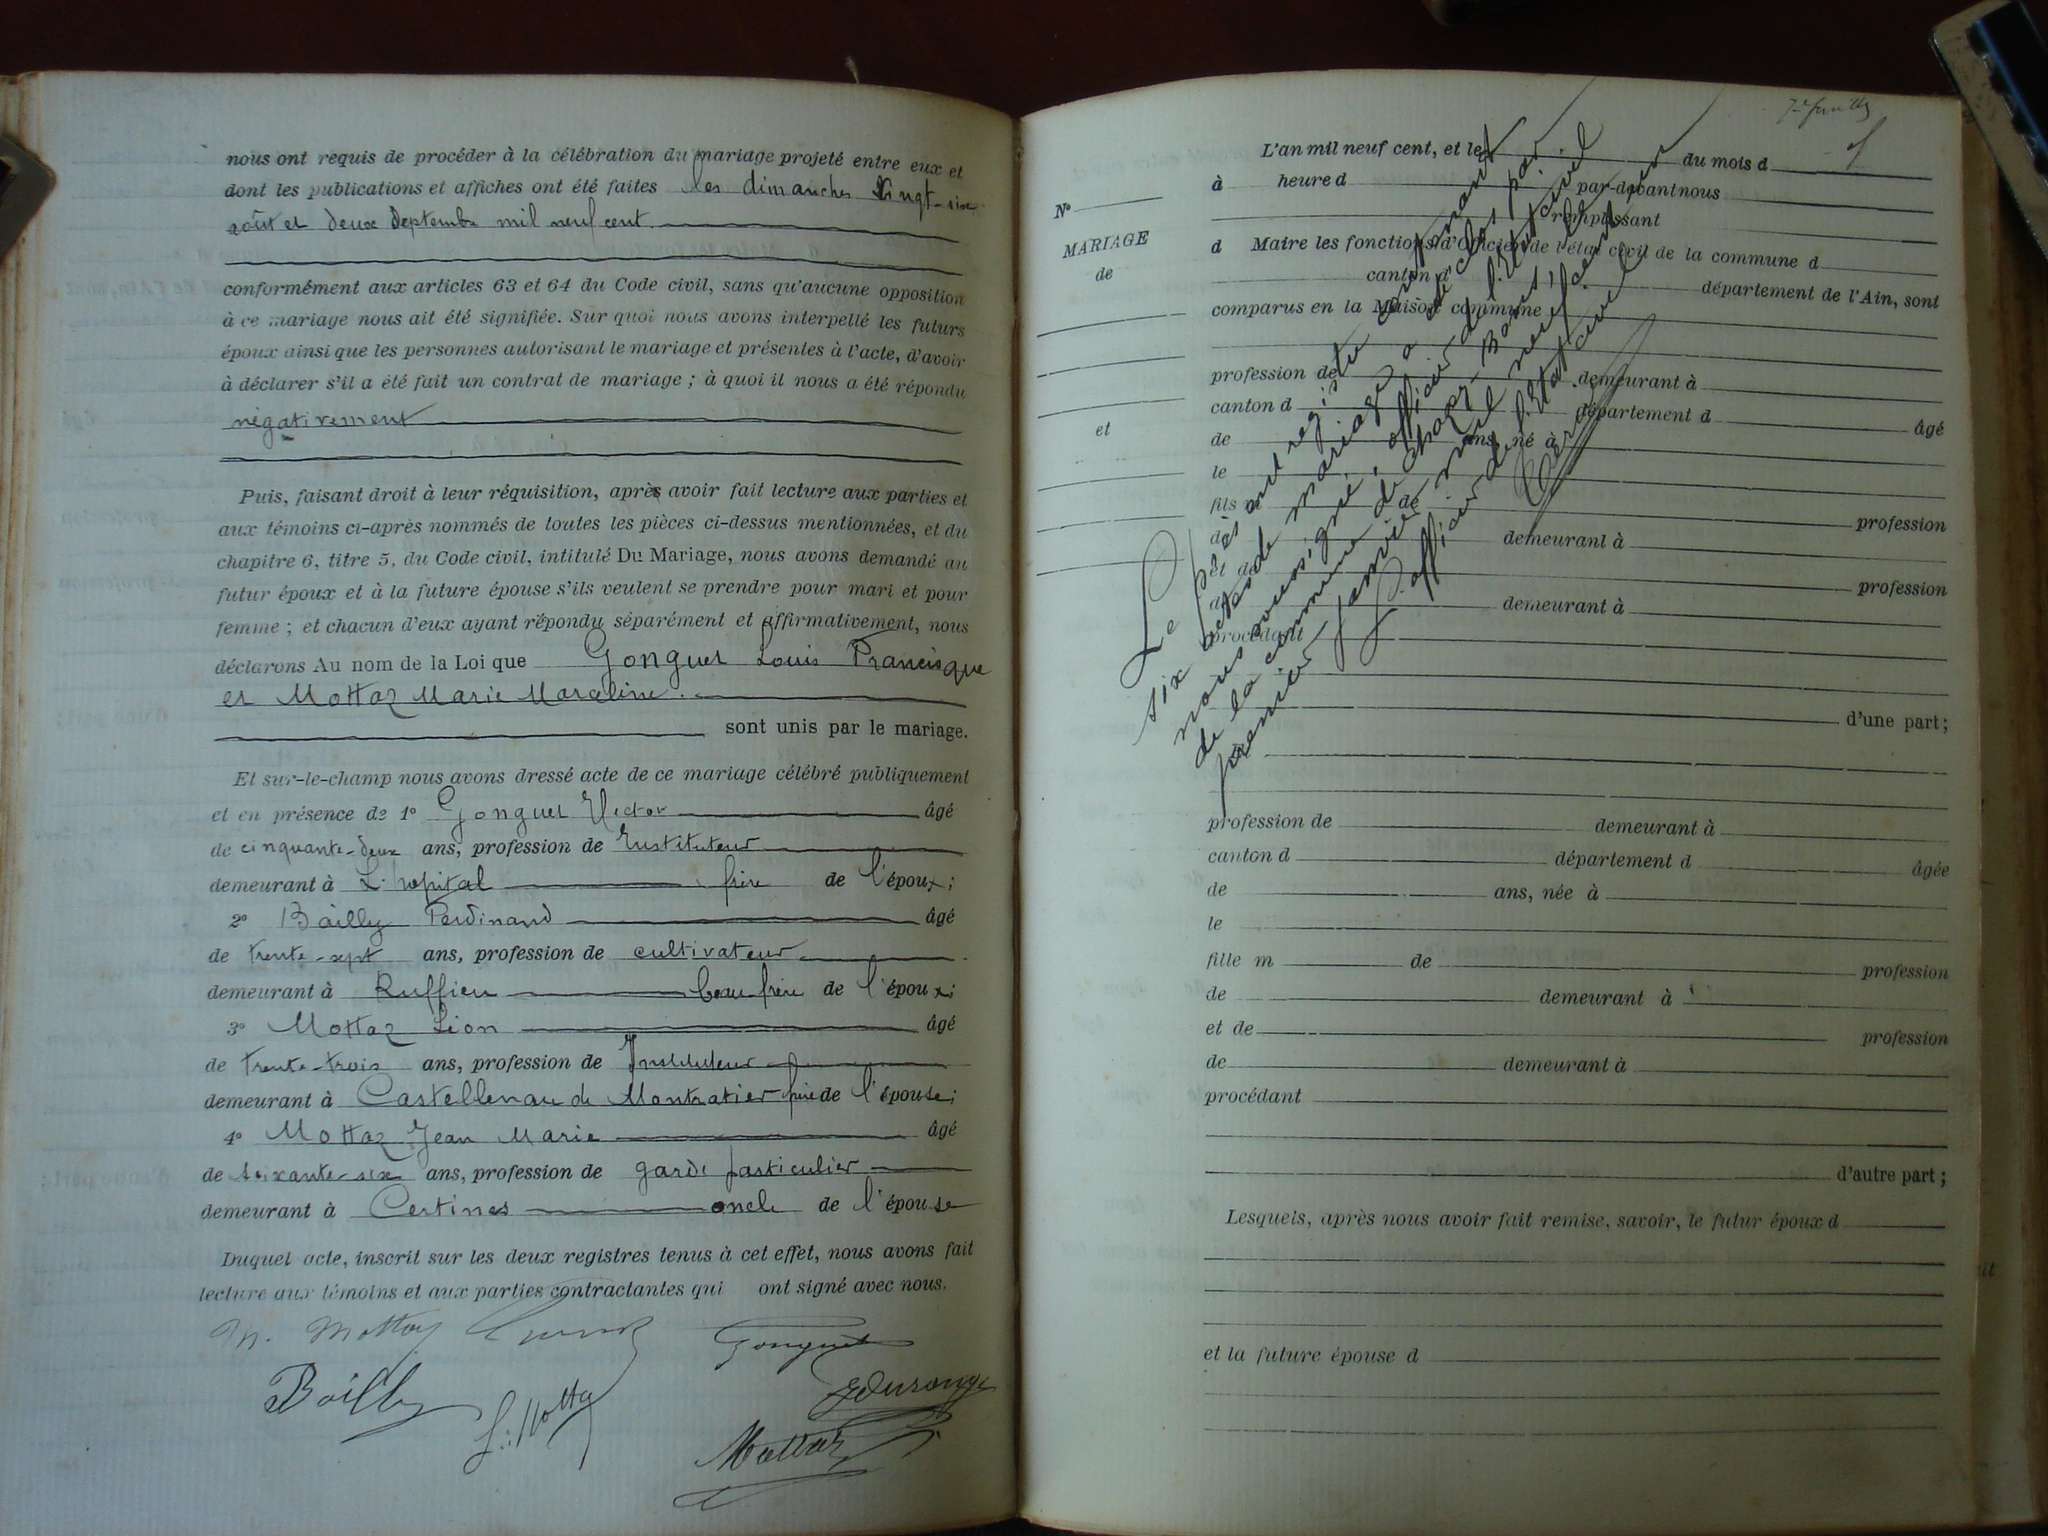 nous ont requis de procéder à la célébration du mariage projeté entre eux et
dont les publications et affiches ont été faites les dimanches vingt-six
août et deux septembre mil neuf cent.
conformément aux articles 63 et 64 du Code civil, sans qu'aucune opposition
à ce mariage nous ait été signifiée. Sur quoi nous avons interpellé les futurs
époux ainsi que les personnes autorisant le mariage et présentes à l'acte, d'avoir
à déclarer s'il a été fait un contrat de mariage ; à quoi il nous a été répondu
négativement
Puis, faisant droit à leur réquisition, après avoir fait lecture aux parties et
aux témoins ci-après nommés de toutes les pièces ci-dessus mentionnées, et du
chapitre 6, titre 5, du Code civil, intitulé Du Mariage, nous avons demandé au
futur époux et à la future épouse s'ils veulent se prendre pour mari et pour
femme ; et chacun d'eux ayant répondu séparément et affirmativement, nous
déclarons Au nom de la Loi que Gonguet Louis Francisque
et Mottaz Marie Marceline.
sont unis par le mariage.
Et sur-le-champ nous avons dressé acte de ce mariage célébré publiquement
et en présence de 1º Gonguet Victor âgé
de cinquante-deux ans, profession de Instituteur
demeurant à L'hopital frère de l'époux;
2º Bailly Ferdinand âgé
de trente-sept ans, profession de cultivateur
demeurant à Ruffieu beau frère de l'époux;
3º Mottaz Léon âgé
de trente-trois ans, profession de Instituteur
demeurant à Castellenau de Montratier frère de l'épouse;
4º Mottaz Jean Marie âgé
de soixante-six ans, profession de garde particulier
demeurant à Certines oncle de l'épouse
Duquel acte, inscrit sur les deux registres tenus à cet effet, nous avons fait
lecture aux témoins et aux parties contractantes qui ont signé avec nous.
M. Mottaz Gonguet
Bailly L. Mottaz
Mottaz
Nº
MARIAGE
de
et
L'an mil neuf cent, et le du mois d
à heure d par-devant nous
remplissant
d Maire les fonctions d'Officier de l'état civil de la commune d
canton d département de l'Ain, sont
comparus en la Maison commune
profession de demeurant à
canton d département d âgé
de ans, né à
le
fils m de profession
de demeurant à
et de profession
de demeurant à
procédant
d'une part;
Le présent registre comprenant
six actes de mariage a été clos par
nous soussigné, officier de l'état civil
de la commune de
premier janvier mil neuf cent un
L'officier de l'état civil
profession de demeurant à
canton d département d âgée
de ans, née à
le
fille m de profession
de demeurant à
et de profession
de demeurant à
procédant
d'autre part;
Lesquels, après nous avoir fait remise, savoir, le futur époux d
et la future épouse d